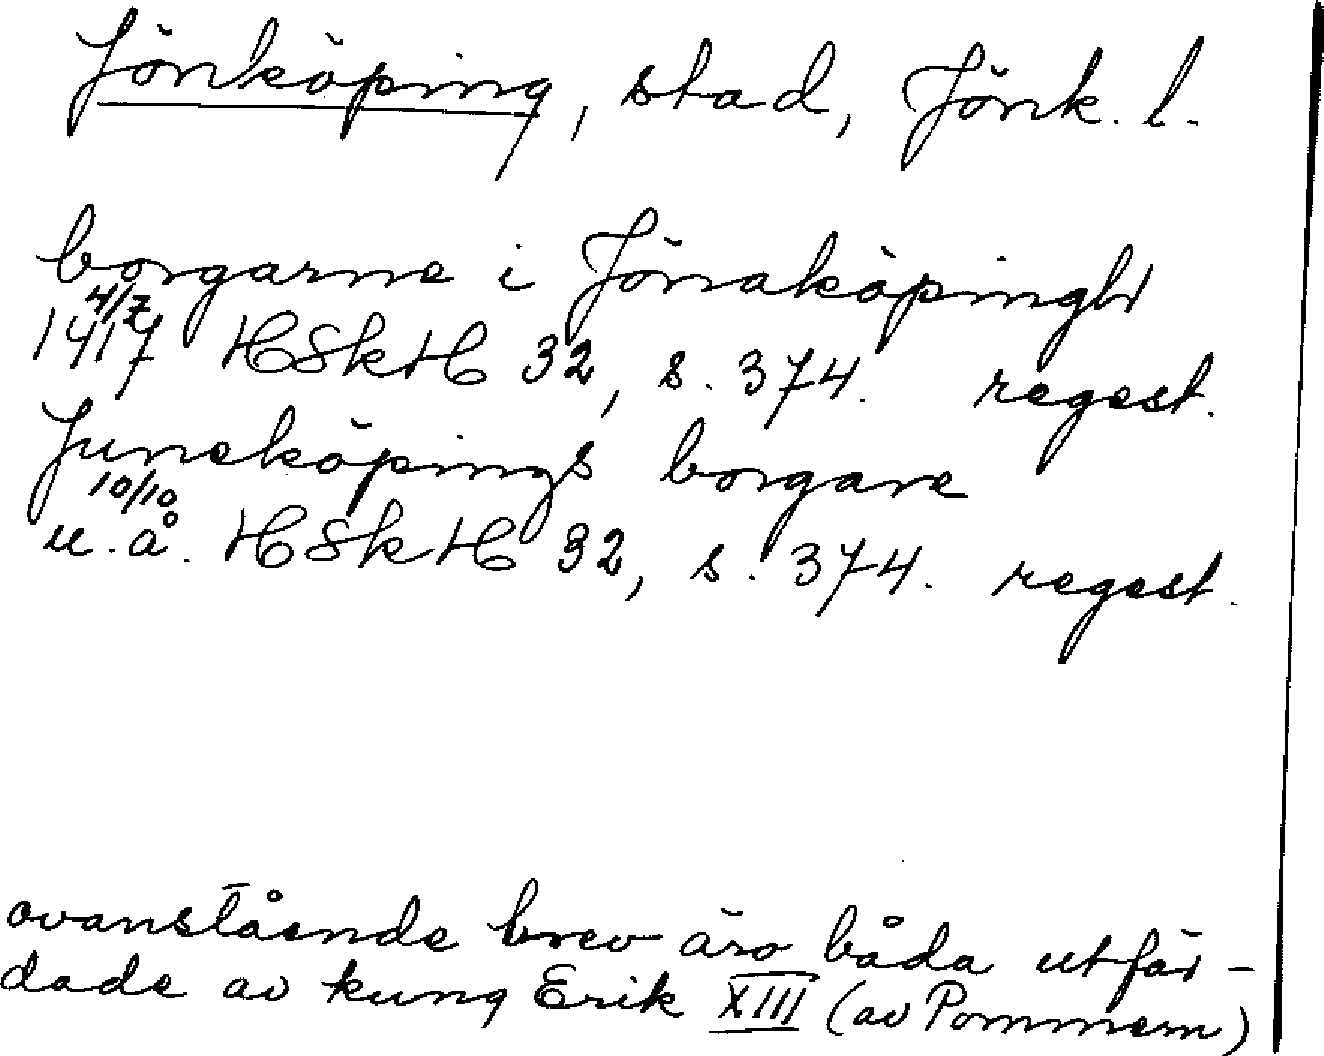 Jönköping, stad, Jönk. l.
borgarne i Jönaköpingh
4/7
1417 HSkH 32, s. 374. regest.
Juneköpings borgare
10/10
u. å. HSkH 32, s. 374. regest.
ovanstående brev äro båda utfär-
dade av kung Erik XIII (av Pommern)